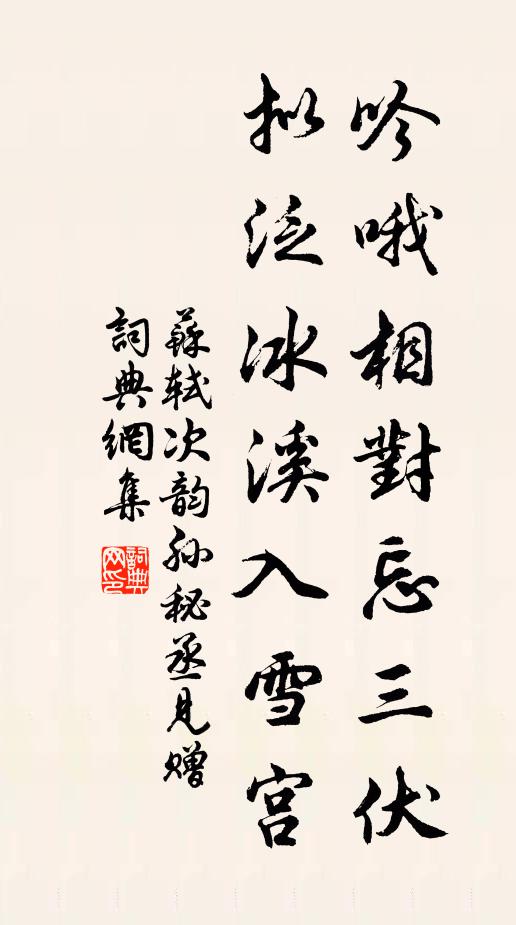 吟哦相對忘三伏
拟泛冰溪入雪宫
蘇轼次韵孙秘丞見贈
詞典網集
詞典网印